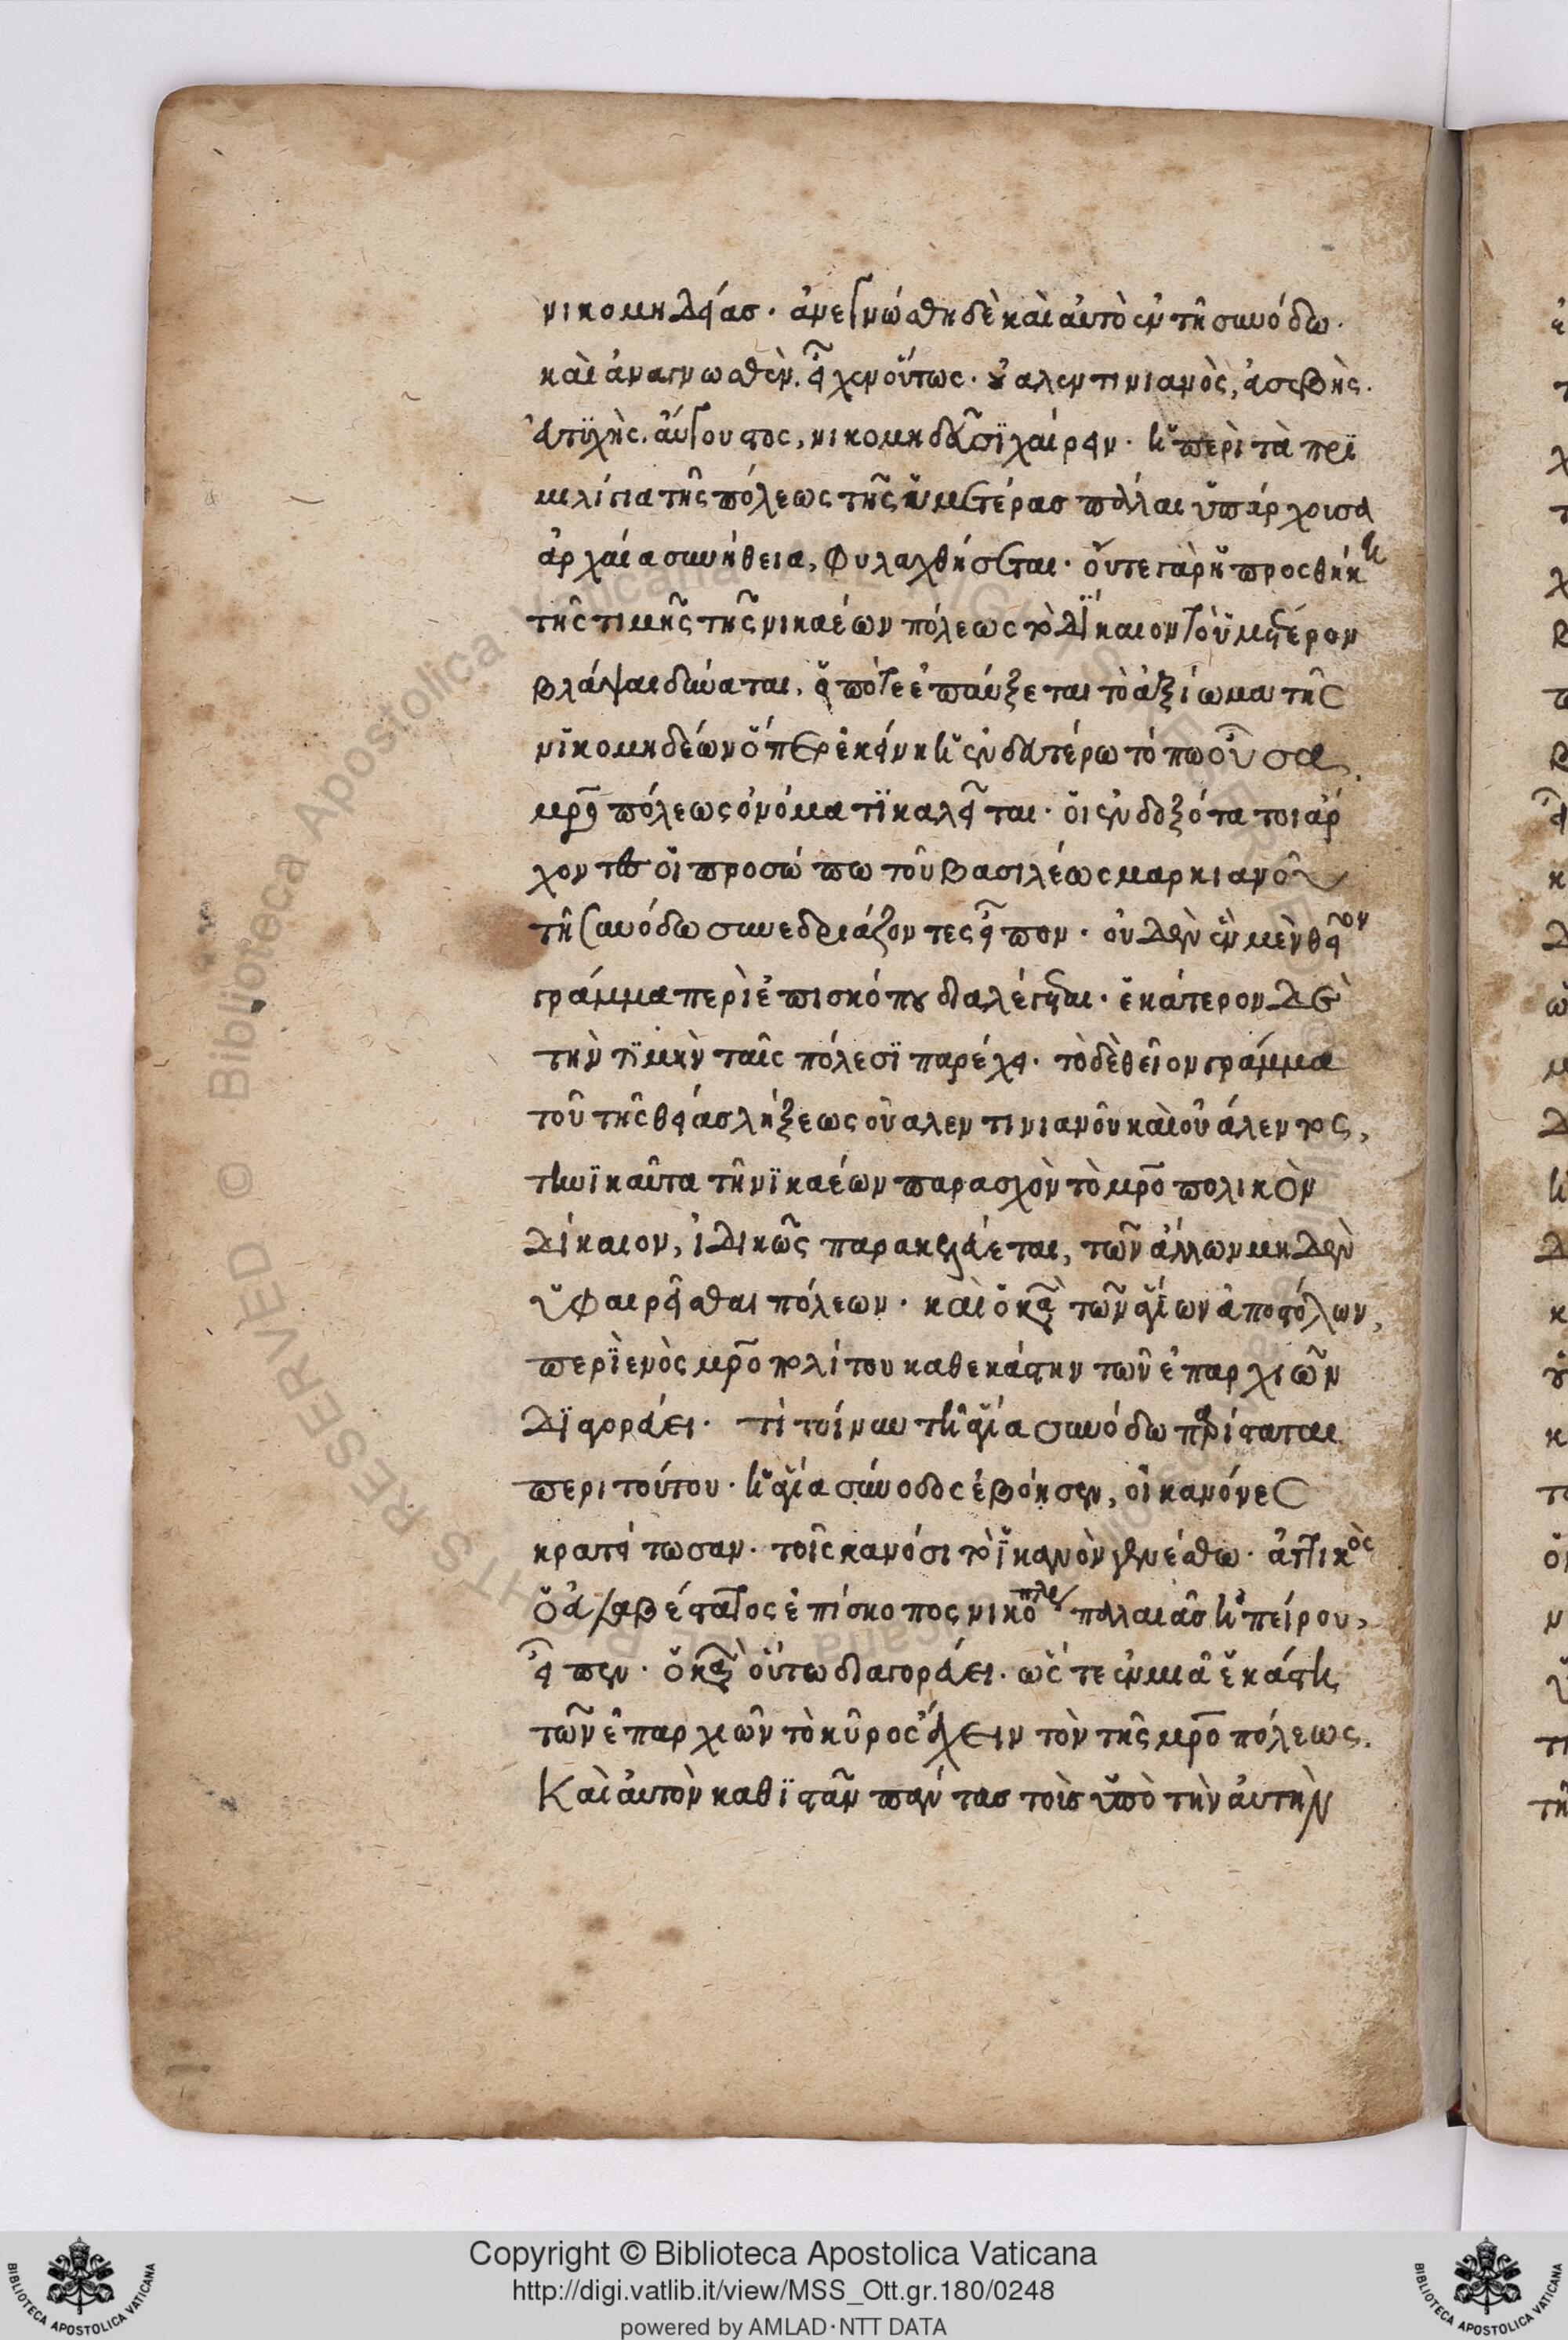 νικομηδείας· ἀνεγνώσθη δὲ καὶ αὐτὸ ἐν τῆ συνόδω·
καὶ ἀναγνωσθὲν. εἶχεν οὕτως· ȣ̓αλεντινιανὸς, ἀσεβὴς.
ἀτϋχὴς. αὔγουστος, νικομηδεῦσϊ χαίρειν· ἡ περὶ τὰ πρϊ
μιλίγια τῆς πόλεως τῆς ἡμετέρας πάλαι ὑπάρχουσα
ἀρχαία συνήθεια, φυλαχθήσεται· οὔτε γὰρ ἡ προσθήκη
τῆς τιμῆς τῆς νικαέων πόλεως τὸ δίκαιον τὸ ὑμέτερον
βλάψαι δύναται, εἴ ποτε ἐπαύξεται τὸ ἀξίωμα τῆς
νϊκομηδέων ὅπερ ἐκείνη ἡ ἐν δευτέρω τόπω οὖσα,
μρο πόλεως ὀνόματϊ καλεῖται· οἱ ἐνδοξότατοι ἄρ
χοντες οἱ προσώπω τοῦ βασιλέως μαρκιανοῦ
τῆ συνόδω συνεδριάζοντες εἶπον· οὐδὲν ἓν μὲν θεῖον
γράμμα περὶ ἐπισκόπȣ διαλέγεται· ἑκάτερον δὲ
τὴν τϊμὴν ταῖς πόλεσϊ παρέχει· τὸ δὲ θεῖον γράμμα
τοῦ τῆς θείας λήξεως οὐαλεντινιανοῦ καὶ οὐάλεντος,
τηνϊκαῦτα τῆ νϊκαέων παρασχὸν τὸ μρο πολικὸν
δίκαιον, ἰδικῶς παρακελεύεται, τῶν ἄλλων μηδὲν
ὑφαιρεῖσθαι πόλεων· καὶ ὁ κα τῶν ἁγίων ἀποστόλων,
περϊ ενὸς μρο πολίτου καθεκάστην τῶν ἐπαρχιῶν
δϊαγορεύει· τὶ τοίνυν τῆ ἁγία συνόδω παρίσταται
περι τούτου· ἡ ἁγία σύνοδος ἐβόησεν, οἱ κανόνες
κρατείτωσαν· τοῖς κανόσι τὸ ἱκανὸν γενέσθω· ἀττικὸς
ὁ εὐλαβέστατος ἐπίσκοπος νικοπλε παλαιᾶς ἠπείρου,
εἶπεν· ὁ κα οὕτω διαγορεύει· ὥς τε ἐν μιᾶ ἑκάστη
τῶν ἐπαρχιῶν τὸ κῦρος ἔχειν τὸν τῆς μρο πόλεως.
Καὶ αὐτὸν καθϊστᾶν πάντας τοὺς ὑπὸ τὴν ἀυτὴν
Copyright © Biblioteca Apostolica Vaticana
http://digi.vatlib.it/view/MSS_Ott.gr.180/0248
powered by AMLAD·NTT DATA